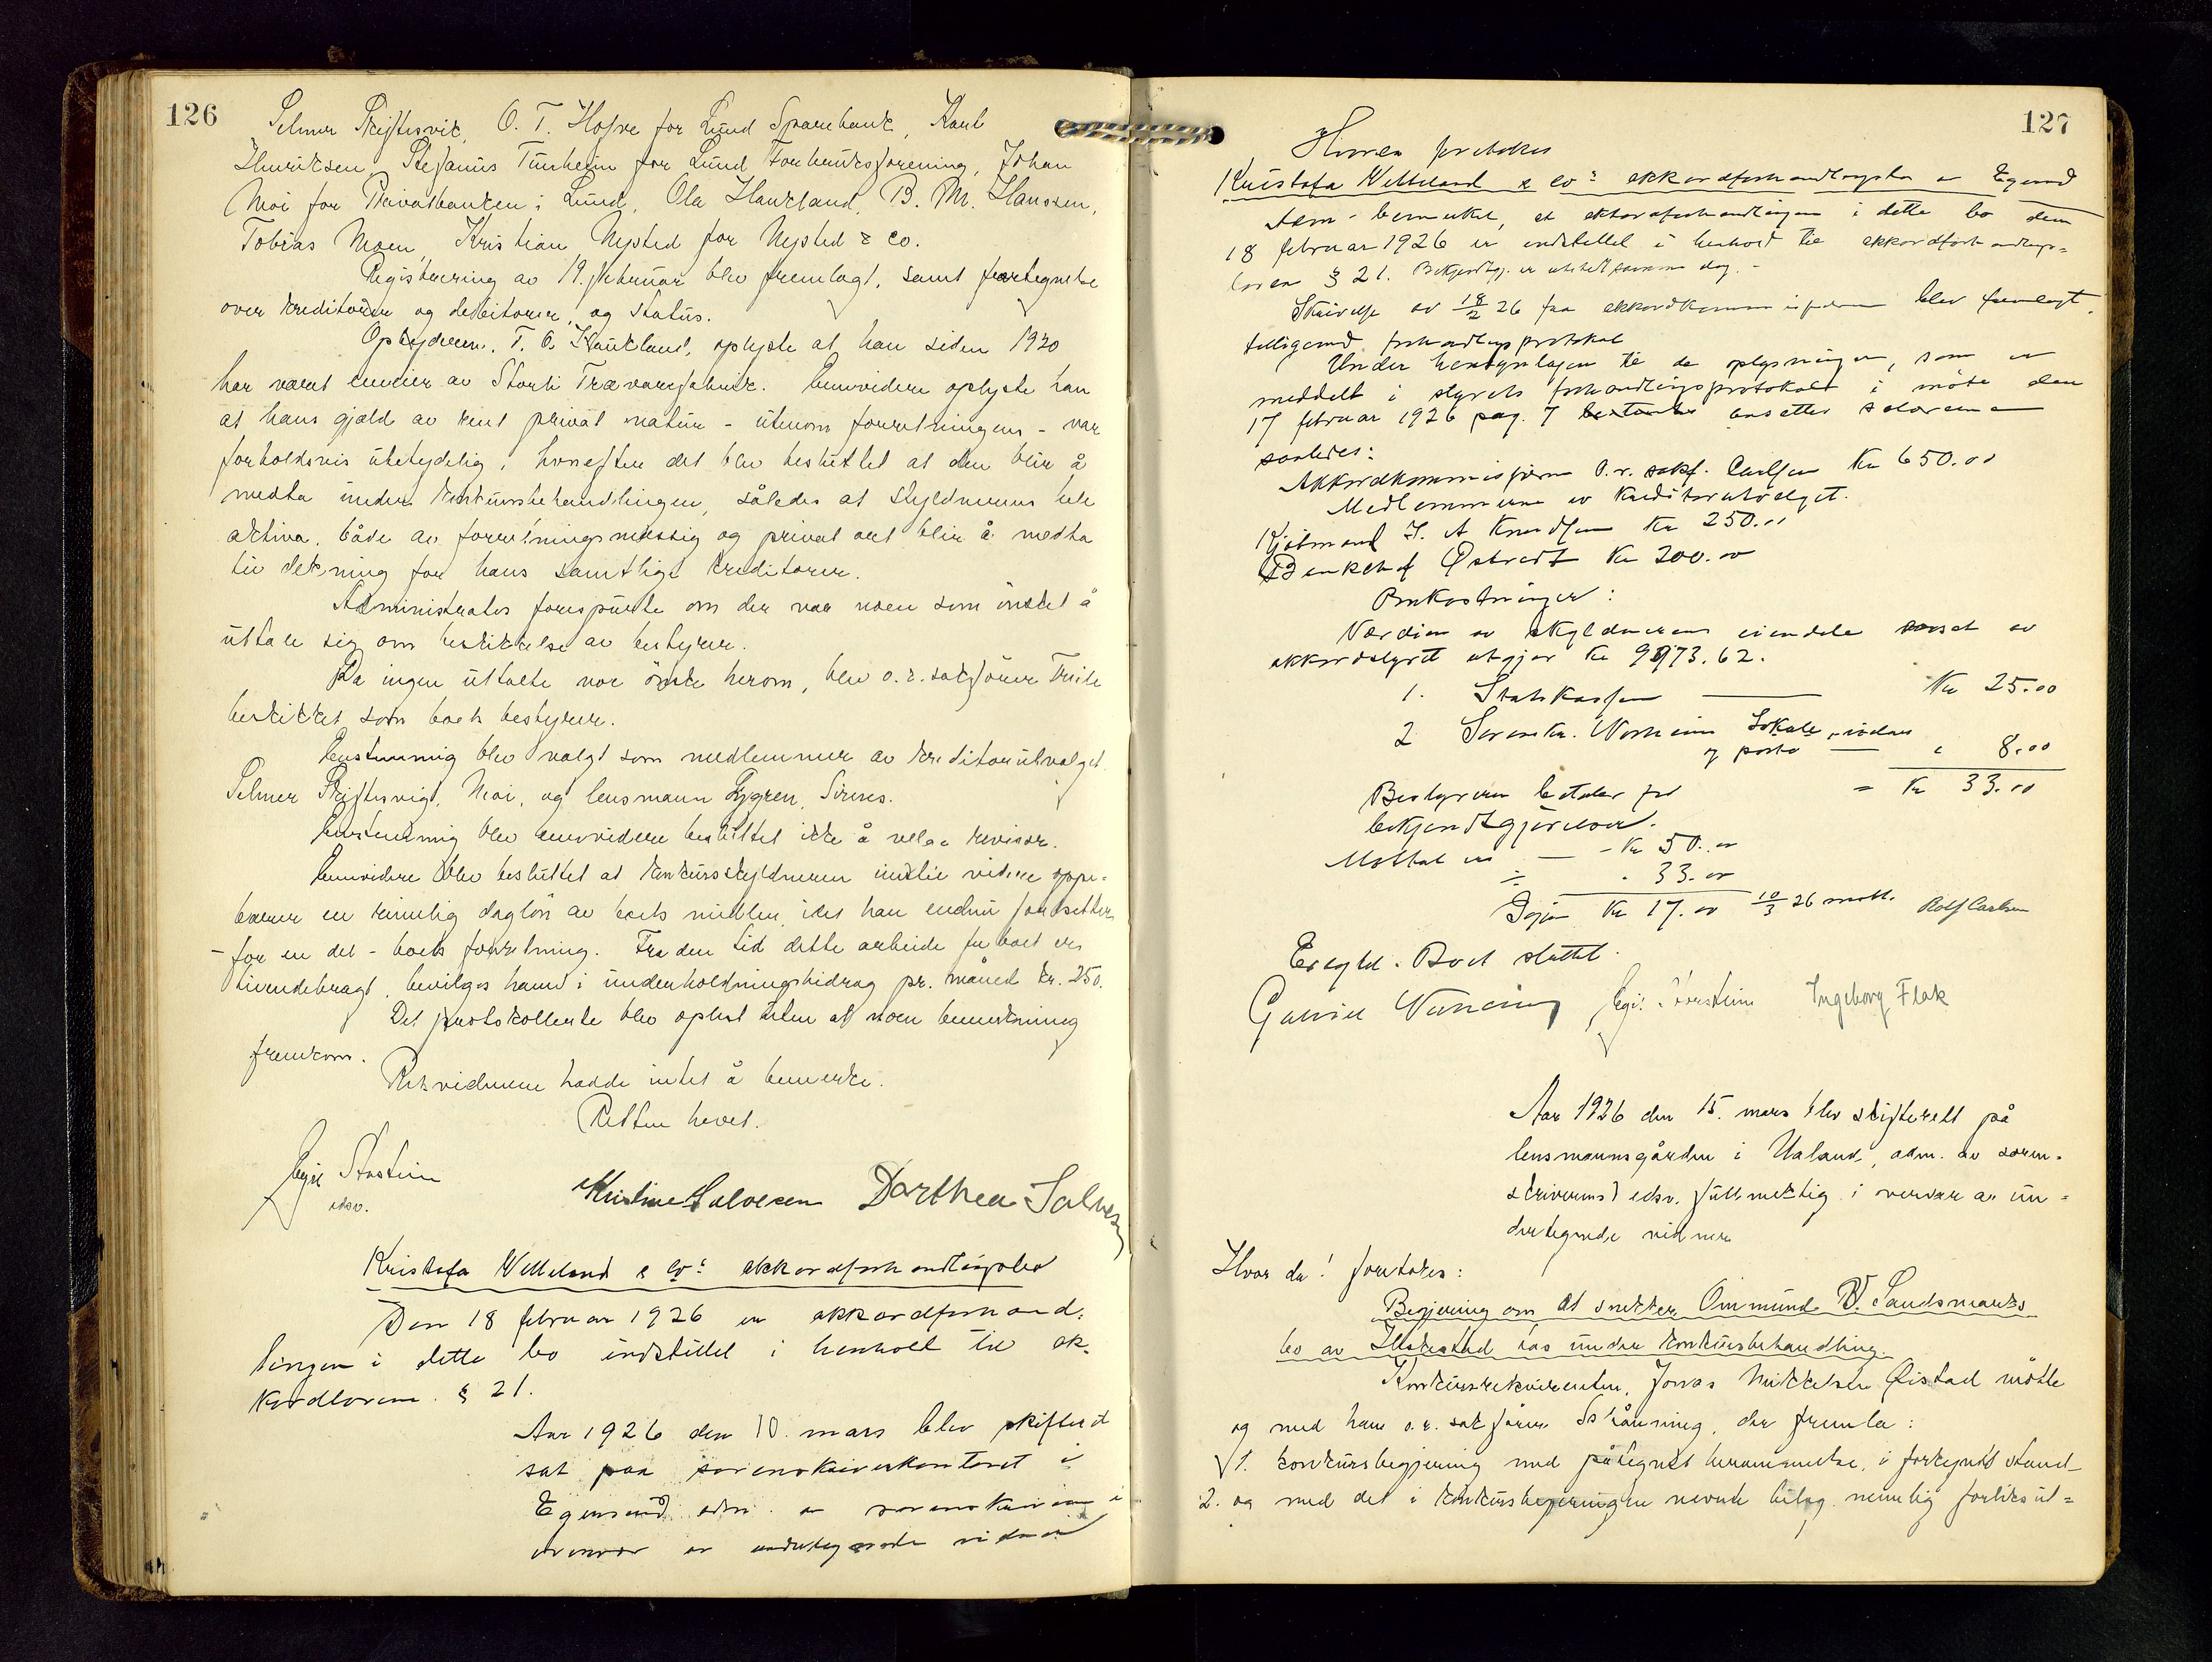 126
Selmer Skiftesvik, O. T. Hofve for Lund Sparebank, Karl
Henriksen, Stefanus Tunheim for Lund Forbruksforening, Johan
Moi for Privatbanken i Lund, Ola Haukland, B. M. Hanssen,
Tobias Moen, Kristian Nysted for Nysted & co.
Registrering av 19. februar blev fremlagt, samt fortegnelse
over kreditorer og debitorer, og status.
Opbyderen, T. O. Haukland, oplyste at han siden 1920
har været eneeier av Storli Trævarefabrik. Ennvidere oplyste han
at hans gjæld av rent privat natur - utenom forretningens - var
forholdsvis ubetydelig, hvorefter det blev besluttet at den blir å
medta under konkursbehandlingen, således at skyldnerens hele
aktiva, både av forretningsmessig og privat art blir å medta
til dekning for hans samtlige kreditorer.
Administrator forespurte om der var noen som ønsket å
uttale sig om beskikkelse av bestyrer.
Da ingen uttalte noe ønske herom, blev o.r.sakfører
beskikket som boets bestyrer.
Enstemmig blev valgt som medlemmer av kreditorutvalget
Selmer Skiftesvig, Moi, og lensmann Sirnes.
Enstemmig blev ennvidere besluttet ikke å velge revisor.
Ennvidere blev besluttet at konkursskyldneren inntil videre oppe-
bærer en rimelig dagløn av boets midler, idet han endnu fortsetter
- for en del - boets forretning. Fra den tid dette arbeide for boet er
tilendebragt, bevilges ham i underholdningsbidrag pr. måned kr. 250.
Det protokollerte blev oplest uten at noen bemerkning
fremkom.
Rettsvidnene hadde intet å bemerke.
Retten hevet.
edsv.
Kristine Salvesen Dorthea Salvesen
Kristofa Velleland & Co's akkordforhandlingsbo
Den 18 februar 1926 er akkordforhand-
lingen i dette bo indstillet i henhold til ak-
kordloven § 21.
Aar 1926 den 10. mars blev skifteret
sat paa sorenskriverkontoret i
Egersund adm. av sorenskriveren i
overvær av undertegnede vidner
127
Hvorda foretokes
Kristofa Velleland & Co's akkordforhandlingsbo av Egersund
bemerket, at akkordforhandlingen i dette bo den
18 februar 1926 er indstillet i henhold til akkordforhandlings-
loven § 21. Bekjentgj. er utstedt samme dag. -
Skrivelse av 18/2 26 fra akkordkommissæren blev fremlagt,
tilligemed forhandlingsprotokol
Under hensyntagen til de oplysninger, som er
meddelt i styrets forhandlingsprotokol i møte den
17 februar 1926 pag. 7 ansettes salærerne
saaledes:
Akkordkommissæren o.r. sakf. Carlsen Kr 650.00
Medlemmerne av kreditorutvalget.
Kjøbmand J. A Knudsen Kr 250.00
Bankchef Østrett Kr 200.00
Omkostninger:
Værdien av skyldnerens eiendele ansat av
akkordstyret utgjør Kr 9973.62.
1. Statskassen Kr 25.00
2 Sorenskr. Lokale, vidner
og porto — " 8.00
= Kr 33.00
Bestyreren betaler for
bekjendtgjørelser.
Mottat — - Kr 50.00
÷ - 33.00
Igjen Kr 17.00 10/3 26 mott. Rolf Carlsen
Boet sluttet.
Ingeborg Flak
Aar 1926 den 15. mars blev skifterett på
lensmannsgården i Ualand, adm. av soren-
skriverens edsv. fullmektig i overvær av un-
dertegnede vidner
Hvor da! foretokes:
Begjering om at snekker Ommund V. Sandsmarks
bo av Helleland tas under konkursbehandling.
Konkursrekvirenten, Jonas Mikkelsen Øistad møtte
og med ham o.r. sakfører der fremla:
1. konkursbegjering med påtegnet berammelse, i forkynt stand
2. og med det i konkursbegjeringen nevnte bilag nemlig forliksut-